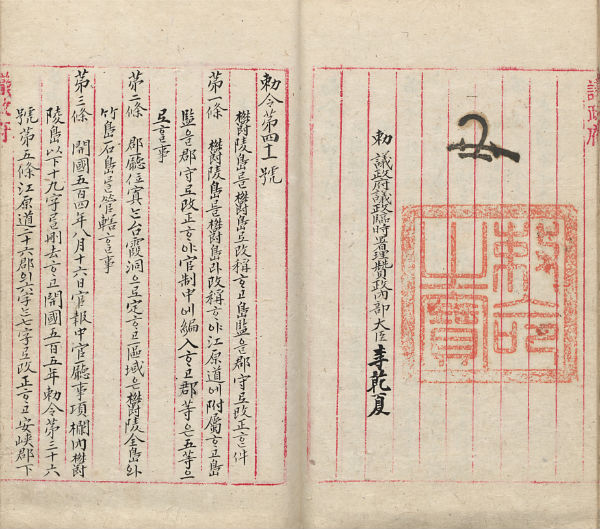 議政府
勅 議政府議政臨時署理贊政內部大臣 李乾夏
勅命之寶
勅令第四十一號
欝陵島를欝島로改稱ᄒᆞ고島監을郡守로改正ᄒᆞᆫ件
第一條 欝陵島를欝島라改稱ᄒᆞ야江原道에附屬ᄒᆞ고島
監을郡守로改正ᄒᆞ야官制中에編入ᄒᆞ고郡等은五等으
로ᄒᆞᆯ事
第二條 郡廳位寘ᄂᆞᆫ台霞洞으로定ᄒᆞ고區域은欝陵全島와
竹島石島ᄅᆞᆯ管轄ᄒᆞᆯ事
第三條 開國五百四年八月十六日官報中官廳事項欄內欝
陵島以下十九字ᄅᆞᆯ刪去ᄒᆞ고開國五百五年勅令第三十六
號第五條江原道二十六郡의六字ᄂᆞᆫ七字로改正ᄒᆞ고安峽郡下
議政府